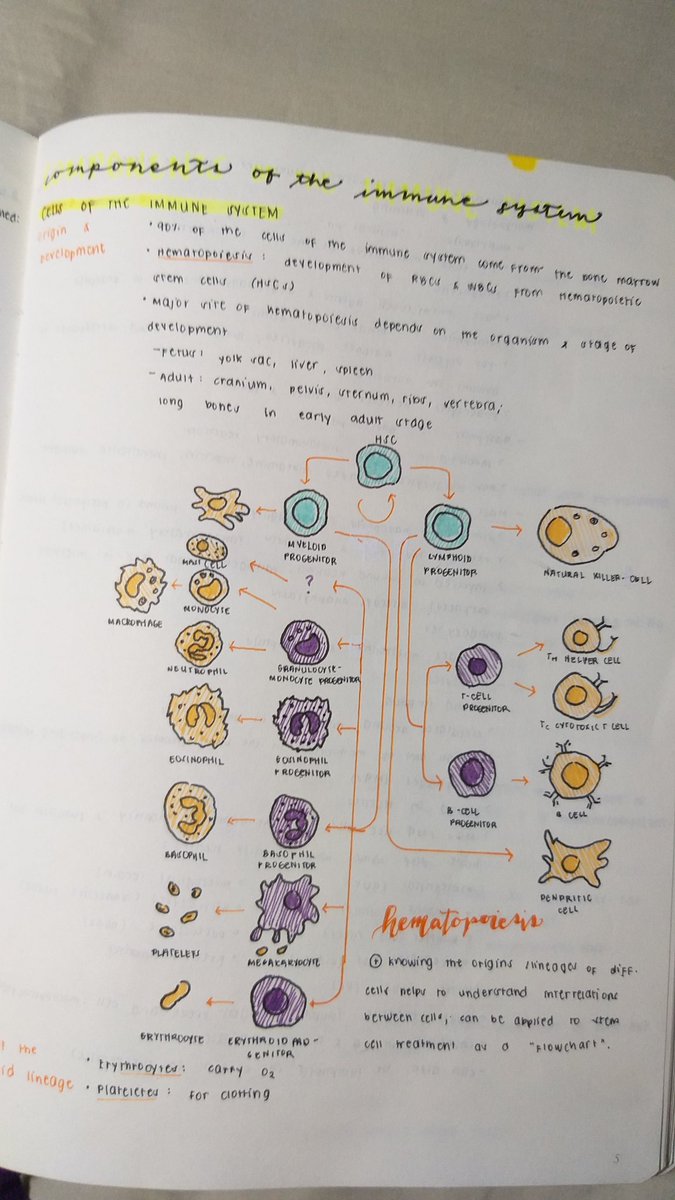 components of the immune system
CELLS OF THE IMMUNE SYSTEM
origin &
development
• 90% of the cells of the immune system come from the bone marrow
• Hematopoiesis : development of RBCs & WBCs from hematopoietic
stem cells (HSCs)
• Major site of hematopoiesis depends on the organism & stage of
development
- Fetus : yolk sac, liver, spleen
- Adult : cranium, pelvis, sternum, ribs, vertebra;
long bones in early adult stage
HSC
MYELOID
PROGENITOR
LYMPHOID
PROGENITOR
NATURAL KILLER-CELL
MAST CELL
?
MONOCYTE
MACROPHAGE
NEUTROPHIL
GRANULOCYTE-
MONOCYTE PROGENITOR
T-CELL
PROGENITOR
TH HELPER CELL
TC CYTOTOXIC T CELL
EOSINOPHIL
EOSINOPHIL
PROGENITOR
B-CELL
PROGENITOR
B CELL
BASOPHIL
BASOPHIL
PROGENITOR
DENDRITIC
CELL
PLATELETS
MEGAKARYOCYTE
ERYTHROCYTE
ERYTHROID PRO-
GENITOR
hematopoiesis
knowing the origins / lineages of diff.
cells helps to understand interrelations
between cells; can be applied to stem
cell treatment as a "flowchart".
the
lineage
• Erythrocytes : carry O2
• Platelets : for clotting
5